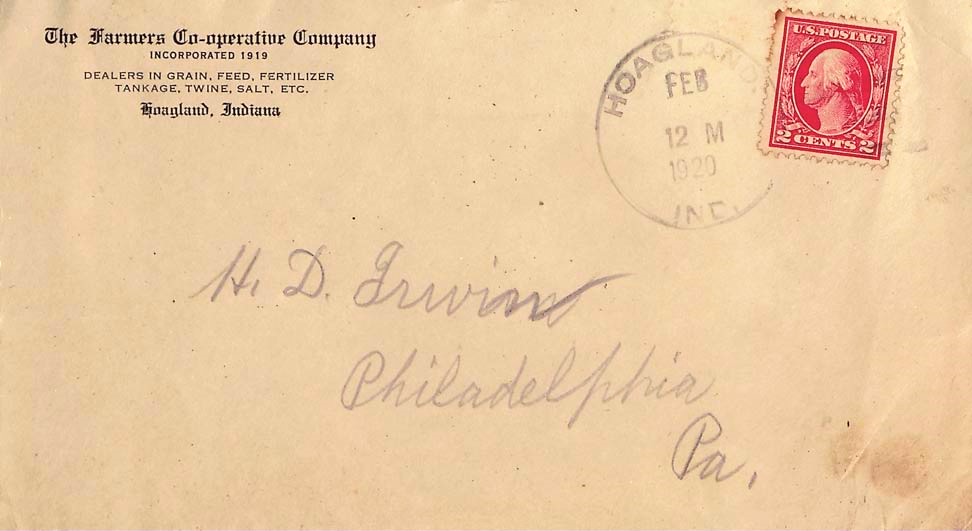 The Farmers Co-operative Company
INCORPORATED 1919
DEALERS IN GRAIN, FEED, FERTILIZER
TANKAGE, TWINE, SALT, ETC.
Hoagland, Indiana
HOAGLAND,
FEB
12 M
1920
IND.
U.S. POSTAGE
2 CENTS 2
H. D. Irwin
Philadelphia
Pa.